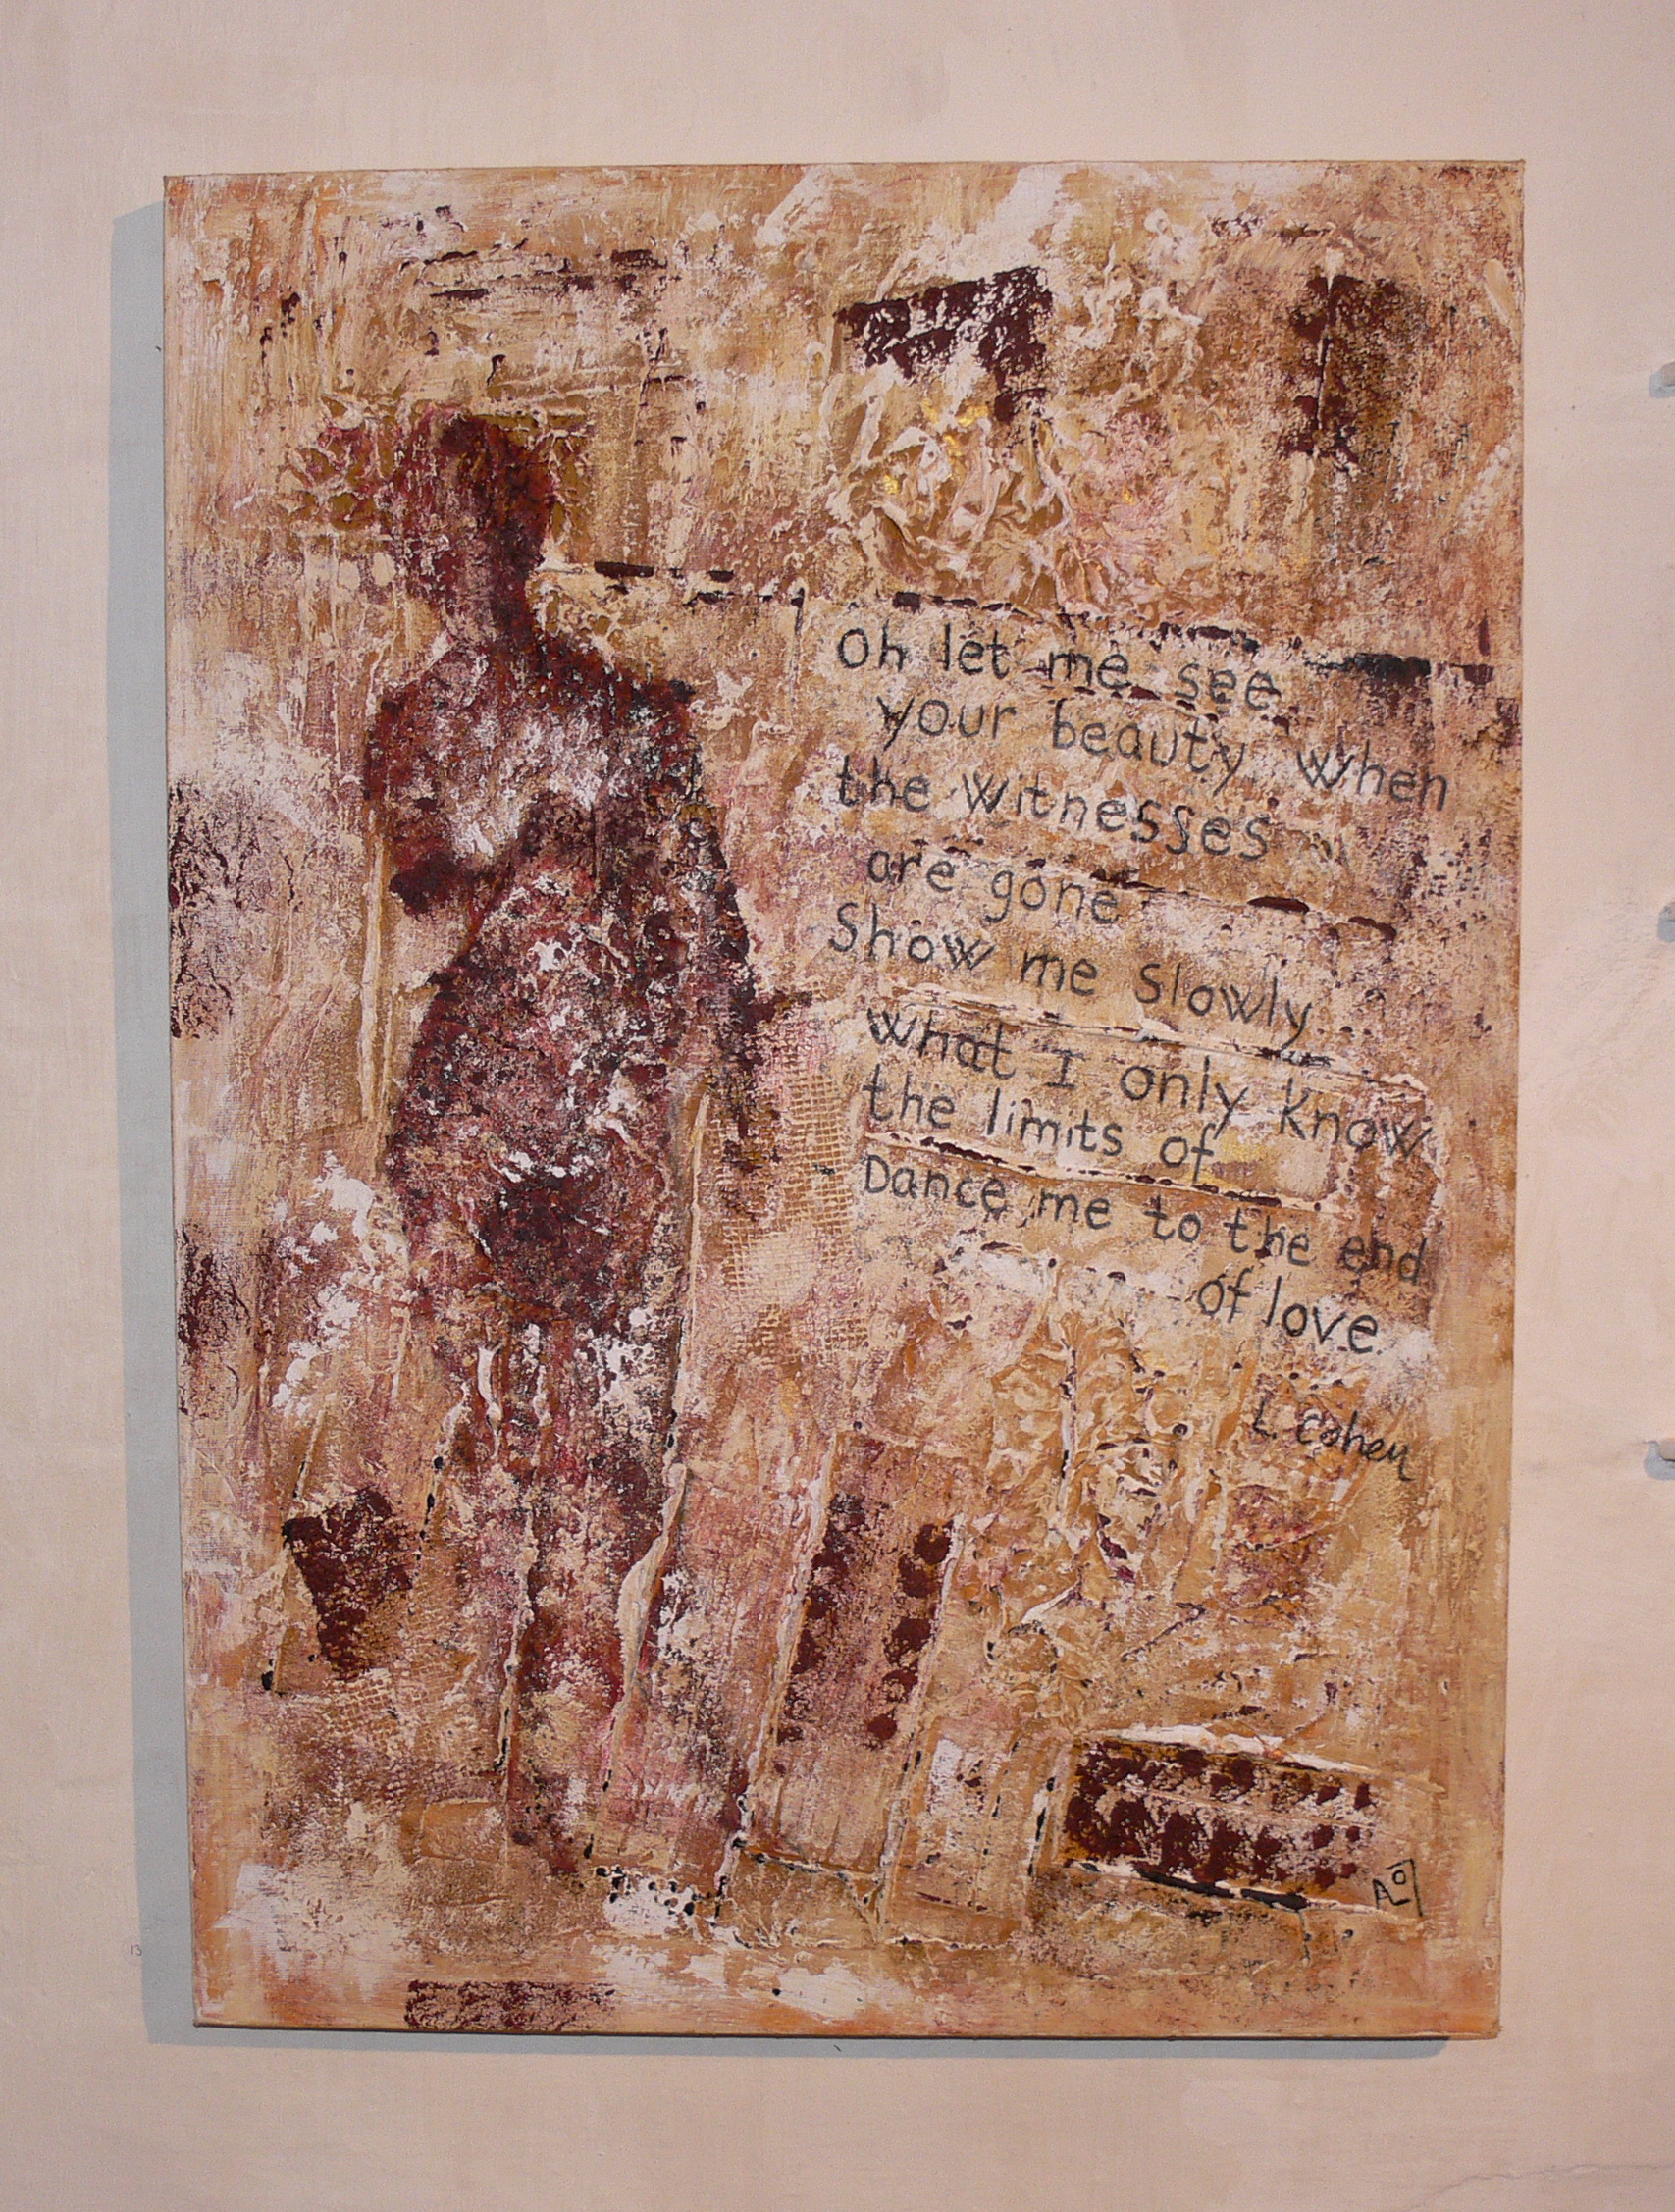 Oh let me see
your beauty when
the witnesses
are gone
Show me slowly
what I only know
the limits of
Dance me to the end
of love
L. Cohen
ALO
13